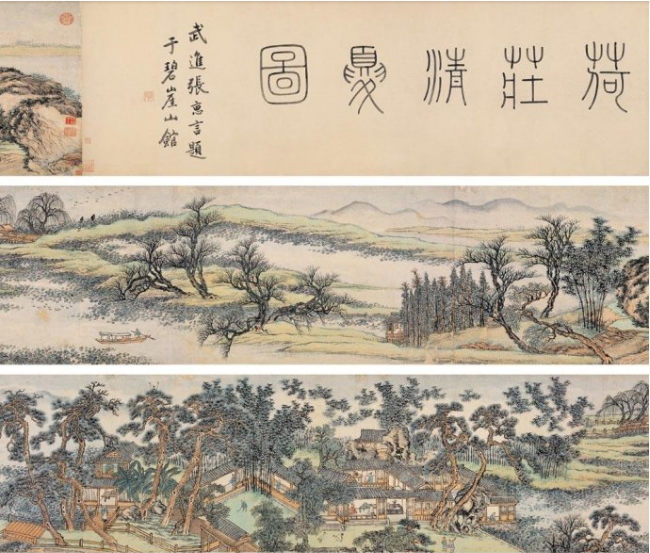 荷莊清夏圖
武進張惠言題
于碧崖山館